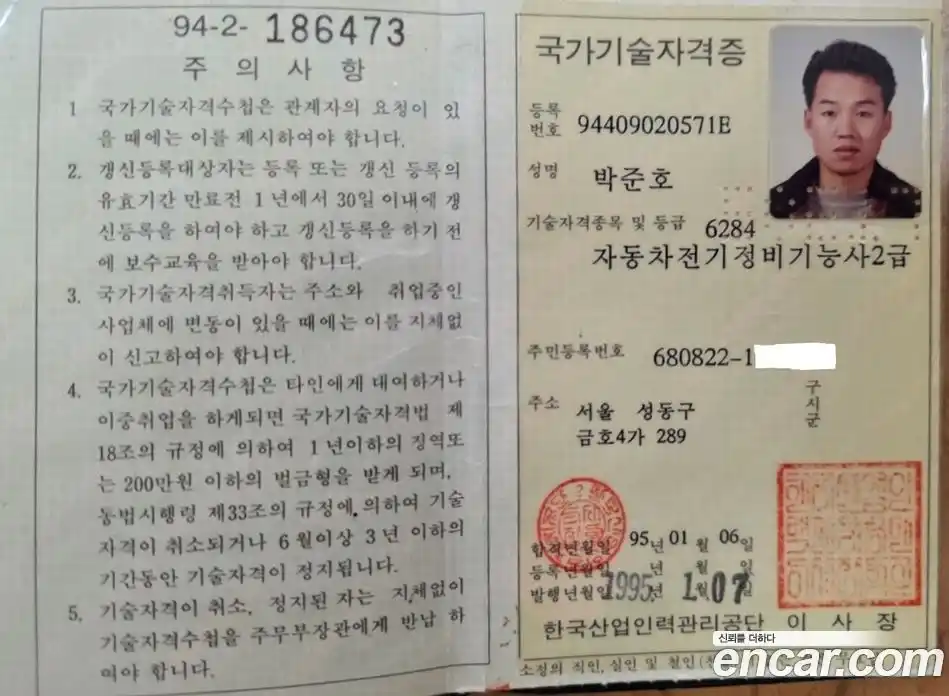 94-2- 186473
주 의 사 항
1 국가기술자격수첩은 관계자의 요청이 있
을 때에는 이를 제시하여야 합니다.
2. 갱신등록대상자는 등록 또는 갱신 등록의
유효기간 만료전 1년에서 30일 이내에 갱
신등록을 하여야 하고 갱신등록을 하기 전
에 보수교육을 받아야 합니다.
3. 국가기술자격취득자는 주소와 취업중인
사업체에 변동이 있을 때에는 이를 지체없
이 신고하여야 합니다.
4. 국가기술자격수첩은 타인에게 대여하거나
이중취업을 하게되면 국가기술자격법 제
18조의 규정에 의하여 1년이하의 징역또
는 200만원 이하의 벌금형을 받게 되며,
동법시행령 제33조의 규정에 의하여 기술
자격이 취소되거나 6월이상 3년 이하의
기간동안 기술자격이 정지됩니다.
5. 기술자격이 취소, 정지된 자는 지체없이
기술자격수첩을 주무부장관에게 반납 하
여야 합니다.
국가기술자격증
등록
번호 94409020571E
성명 박준호
기술자격종목 및 등급 6284
자동차전기정비기능사2급
주민등록번호 680822-1
주소 서울 성동구
금호4가 289
구
시
군
합격년월일 95년 01월 06일
등록년월일 년 월 일
발행년월일 1995년 1월 07일
한국산업인력관리공단 이 사 장
소정의 직인, 실인 및 철인(
신뢰를 더하다
encar.com